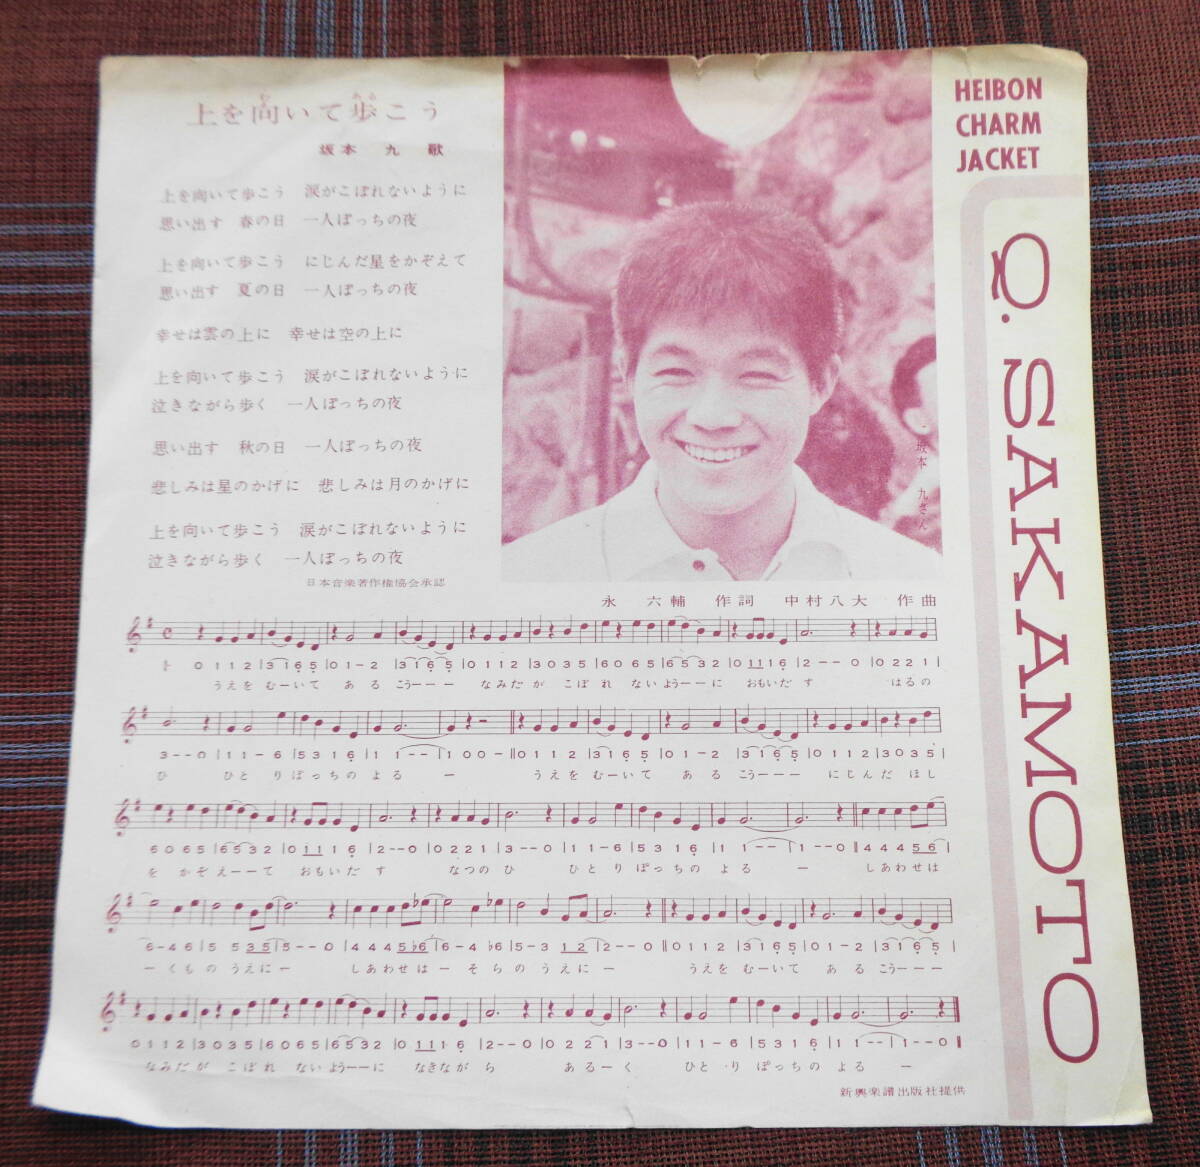 上を向いて歩こう
む ある
坂本 九 歌
上を向いて歩こう 涙がこぼれないように
思い出す 春の日 一人ぽっちの夜
上を向いて歩こう にじんだ星をかぞえて
思い出す 夏の日 一人ぽっちの夜
幸せは雲の上に 幸せは空の上に
上を向いて歩こう 涙がこぼれないように
泣きながら歩く 一人ぽっちの夜
思い出す 秋の日 一人ぽっちの夜
悲しみは星のかげに 悲しみは月のかげに
上を向いて歩こう 涙がこぼれないように
泣きながら歩く 一人ぽっちの夜
日本音楽著作権協会承認
HEIBON
CHARM
JACKET
Q. SAKAMOTO
坂本 九さん
永 六輔 作詞 中村八大 作曲
0 1 1 2 | 3 1 6 5 | 0 1 - 2 | 3 1 6 5 | 0 1 1 2 | 3 0 3 5 | 6 0 6 5 | 6 5 3 2 | 0 1 1 1 6 | 2 - - 0 | 0 2 2 1 |
うえを むーいて ある こうーーー なみだが こぼ れ ないようーーに おもいだ す はるの
3 - - 0 | 1 1 - 6 | 5 3 1 6 | 1 1 - - | 1 0 0 - || 0 1 1 2 | 3 1 6 5 | 0 1 - 2 | 3 1 6 5 | 0 1 1 2 | 3 0 3 5 |
ひ ひと り ぽっちの よ る ー うえを むーいて ある こうーーー にじんだ ほし
6 0 6 5 | 6 5 3 2 | 0 1 1 1 6 | 2 - - 0 | 0 2 2 1 | 3 - - 0 | 1 1 - 6 | 5 3 1 6 | 1 1 - - | 1 - - 0 || 4 4 4 5 6 |
を かぞ えーーて おもいだ す なつの ひ ひと り ぽっちの よ る ー しあわせは
6 - 4 6 | 5 5 3 5 | 5 - - 0 | 4 4 4 5 ♭6 | 6 - 4 ♭6 | 5 - 3 1 2 | 2 - - 0 || 0 1 1 2 | 3 1 6 5 | 0 1 - 2 | 3 1 6 5 |
ーくも の うえに ー しあわせは ーそ ら の うえに ー うえを むーいて ある こうーーー
0 1 1 2 | 3 0 3 5 | 6 0 6 5 | 6 5 3 2 | 0 1 1 1 6 | 2 - - 0 | 0 2 2 1 | 3 - - 0 | 1 1 - 6 | 5 3 1 6 | 1 1 - - | 1 - - 0 ||
なみだが こぼ れ ないようーーに なきなが ら あるー く ひと り ぽっちの よ る ー
新興楽譜出版社提供